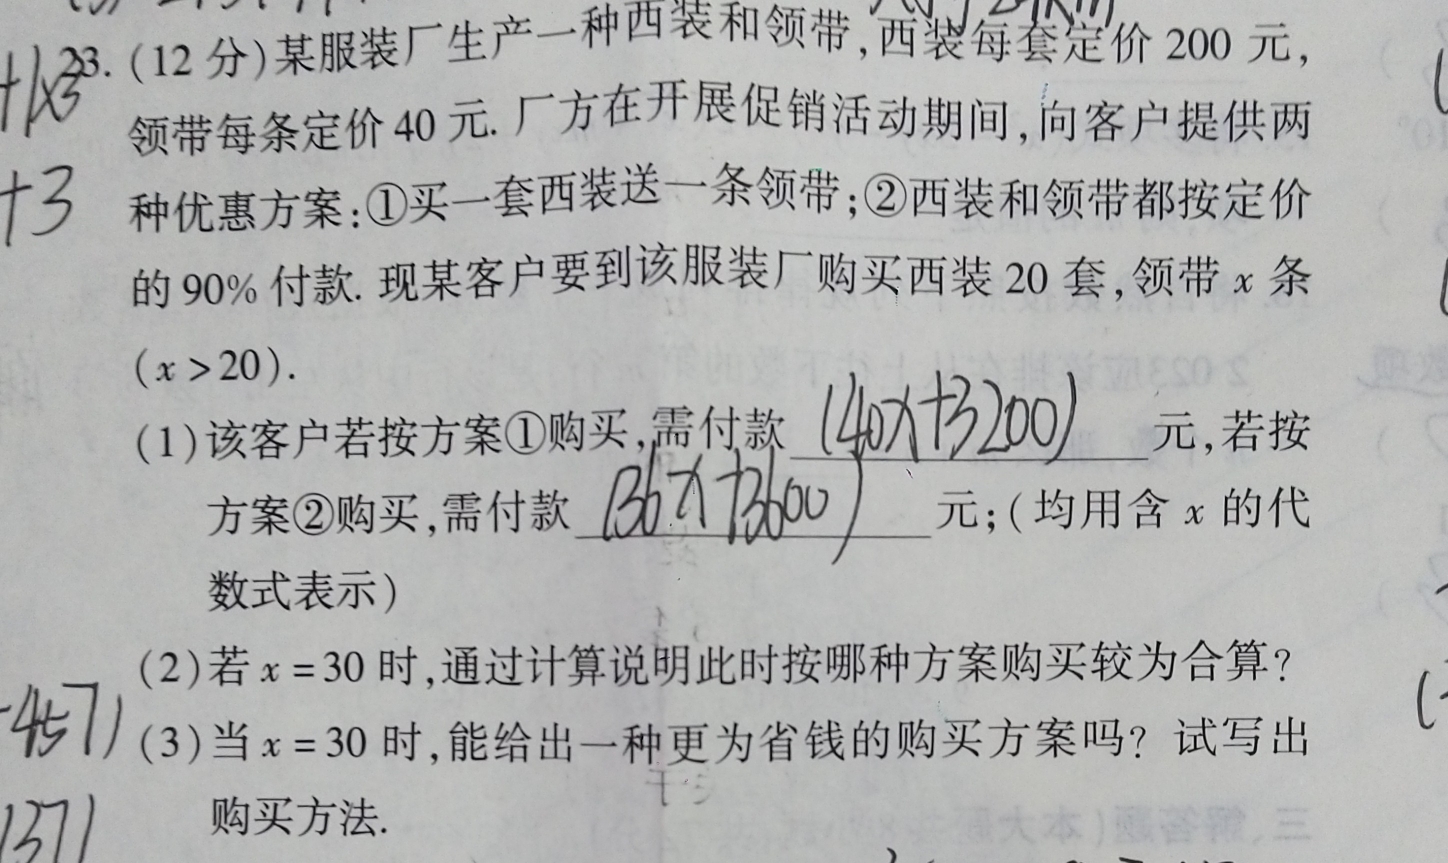 +1x3
23. (12分)某服装厂生产一种西装和领带,西装每套定价200元,
领带每条定价40元. 厂方在开展促销活动期间,向客户提供两
+3
种优惠方案:①买一套西装送一条领带;②西装和领带都按定价
的90%付款. 现某客户要到该服装厂购买西装20套,领带x条
(x>20).
(1)该客户若按方案①购买,需付款 (40x+3200) 元,若按
方案②购买,需付款 (36x+3600) 元;(均用含x的代
数式表示)
(2)若x=30时,通过计算说明此时按哪种方案购买较为合算?
-457)
(3)当x=30时,能给出一种更为省钱的购买方案吗? 试写出
购买方法.
137)